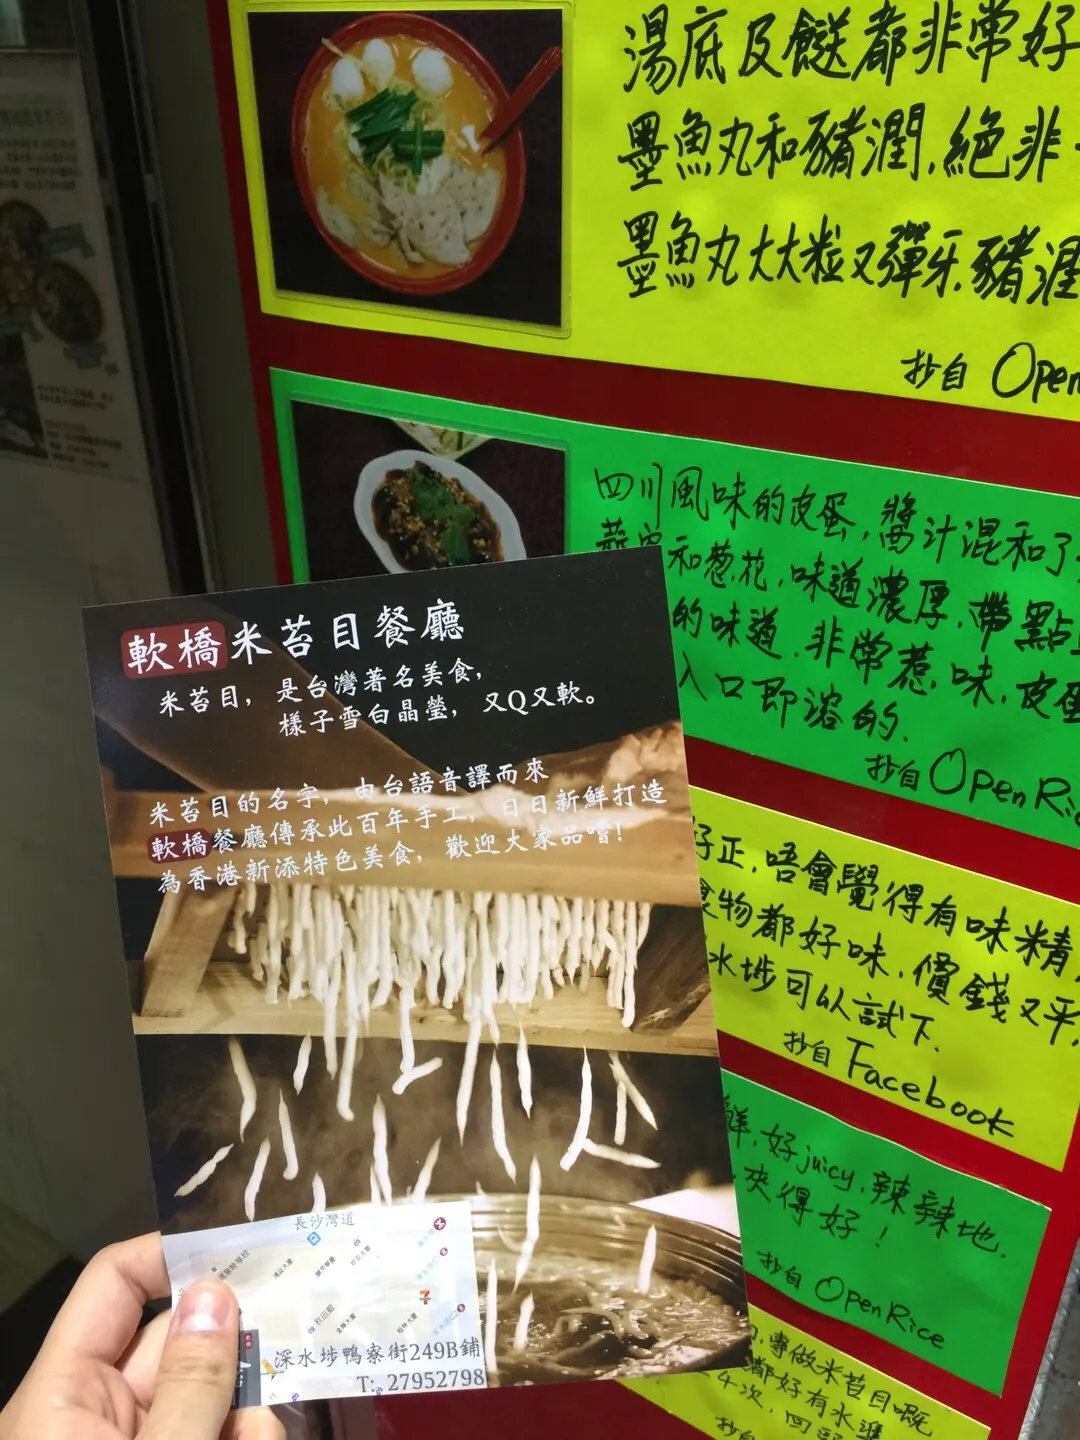 湯底及餸都非常好
墨魚丸和豬潤,絕非
墨魚丸大大粒又彈牙.豬潤
抄自 Open
四川風味的皮蛋,醬汁混和了
和葱花,味道濃厚.帶點
的味道.非常惹味,皮蛋
入口即溶的.
抄自 OpenRi
好正,唔會覺得有味精
食物都好味.價錢又平,
水埗可以試下.
抄自 Facebook
鮮,好juicy,辣辣地.
夾得好!
抄自 OpenRice
專做米苔目嘅
都好有水準
4次,回
抄自
軟橋米苔目餐廳
米苔目，是台灣著名美食，
樣子雪白晶瑩，又Q又軟。
米苔目的名字，由台語音譯而來
軟橋餐廳傳承此百年手工，日日新鮮打造
為香港新添特色美食，歡迎大家品嚐！
長沙灣道
深水埗鴨寮街249B鋪
T: 27952798